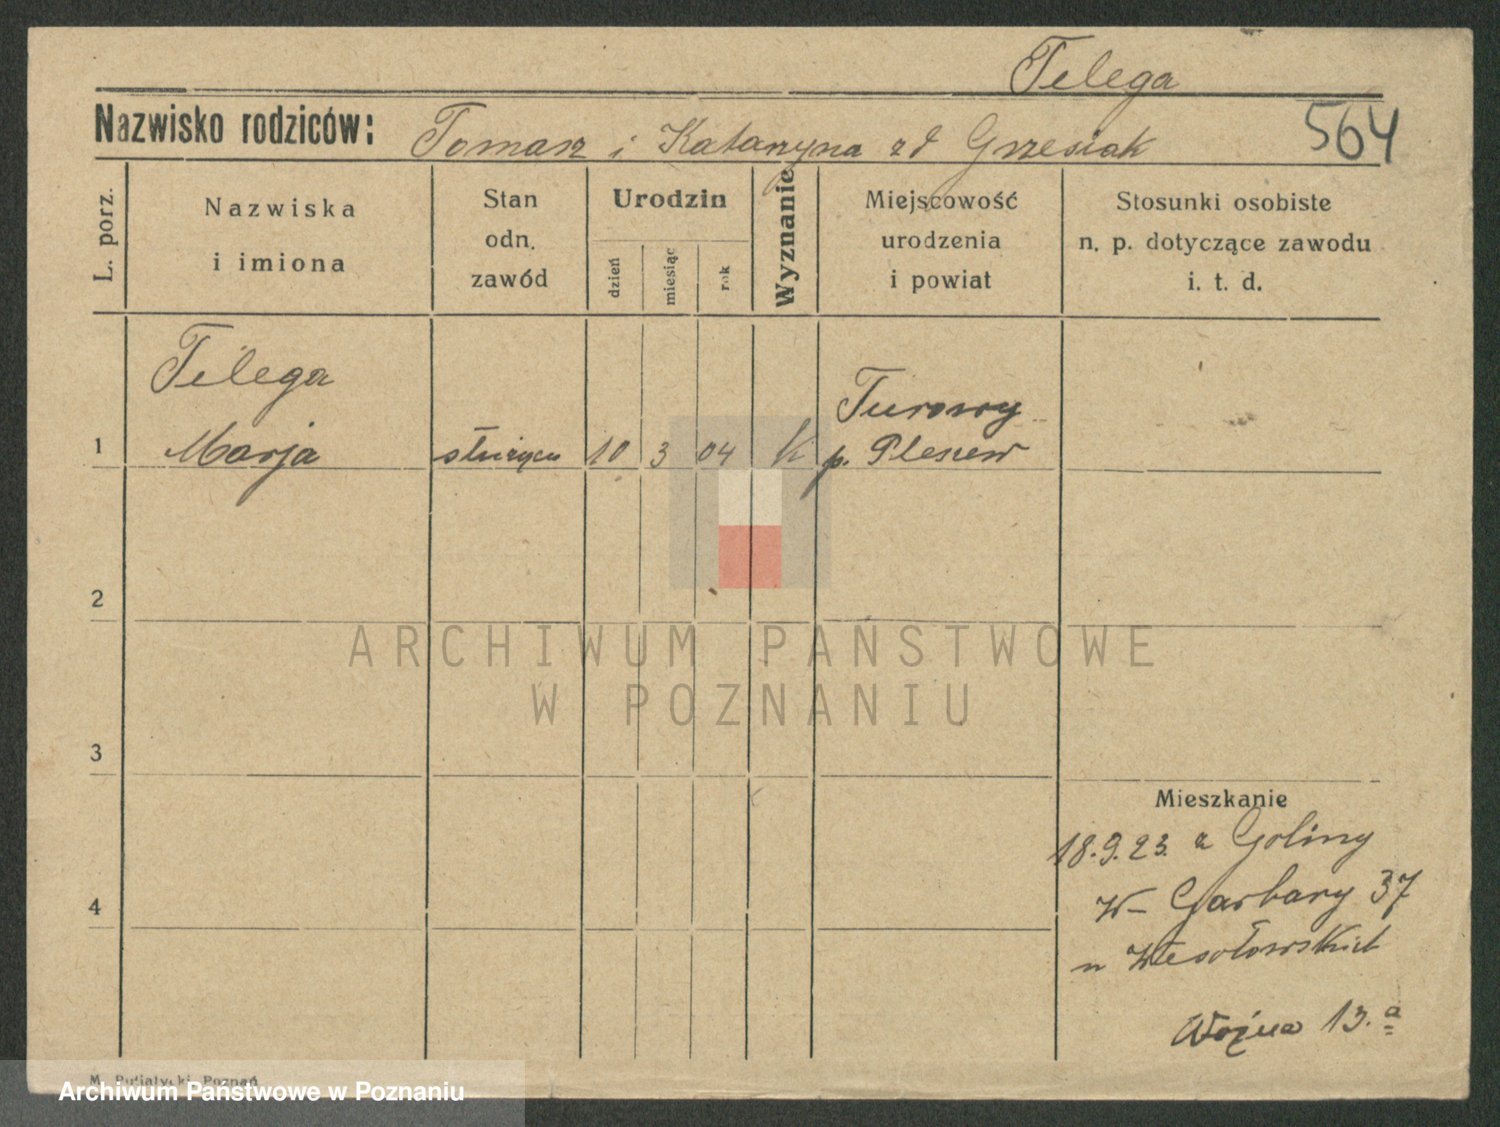 Telega
Nazwisko rodziców: Tomasz i Katarzyna zd Grzesiak
564
L. porz.
Nazwiska
i imiona
Stan
odn.
zawód
Urodzin
dzień
miesiąc
rok
Wyznanie
Miejscowość
urodzenia
i powiat
Stosunki osobiste
n. p. dotyczące zawodu
i. t. d.
Telega
Turowy
1 Marja służąca 10 3 04 K p. Pleszew
2
ARCHIWUM PAŃSTWOWE
W POZNANIU
3
Mieszkanie
18.9.23. z Goliny
W- Garbary 37
4
u Wesołowskich
Woźna 13.a
M. Putiatycki Poznań
Archiwum Państwowe w Poznaniu